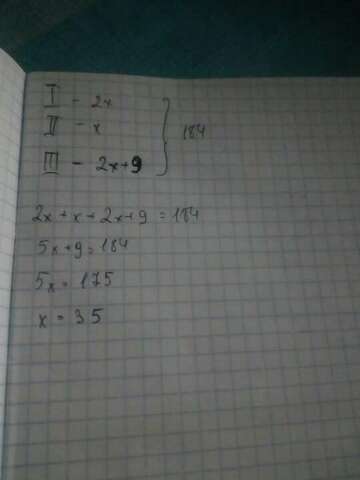 I - 2x
II - x
184
III - 2x+9
2x + x + 2x+9 = 184
5x+9 = 184
5x = 175
x = 35